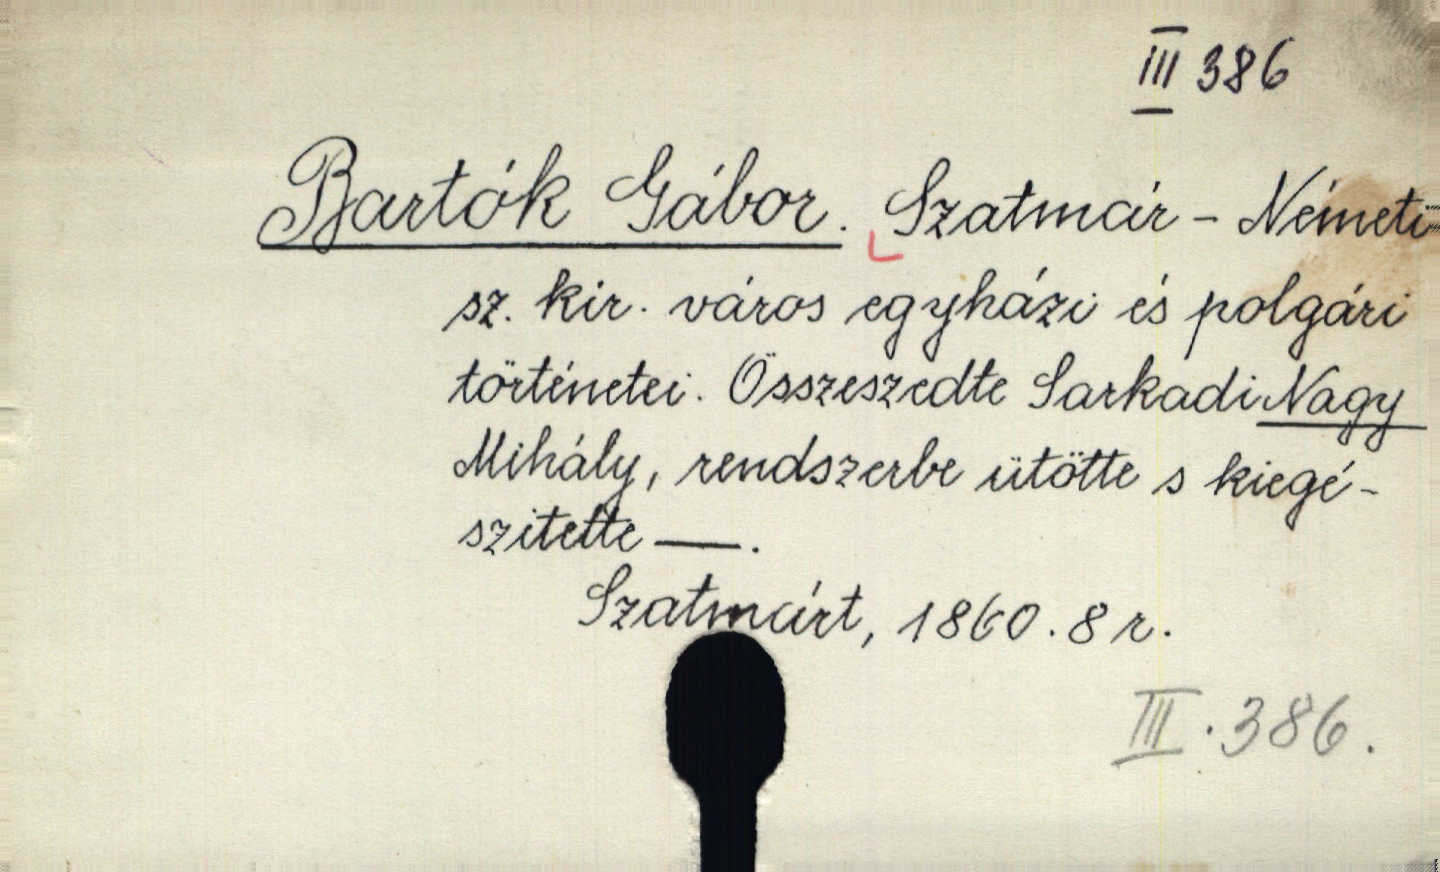 III 386
Bartók Gábor. Szatmár - Németi
sz. kir. város egyházi és polgári
történetei. Összeszedte Sarkadi Nagy
Mihály, rendszerbe ütötte s kiegé-
szitette —.
Szatmárt, 1860. 8 r.
III. 386.